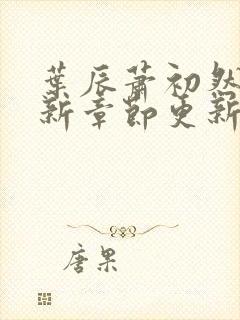 葉辰蕭初然
新章節更新
唐果